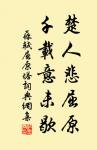 楚人悲屈原
千載意未歇
蘇軾屈原塔詞典網集